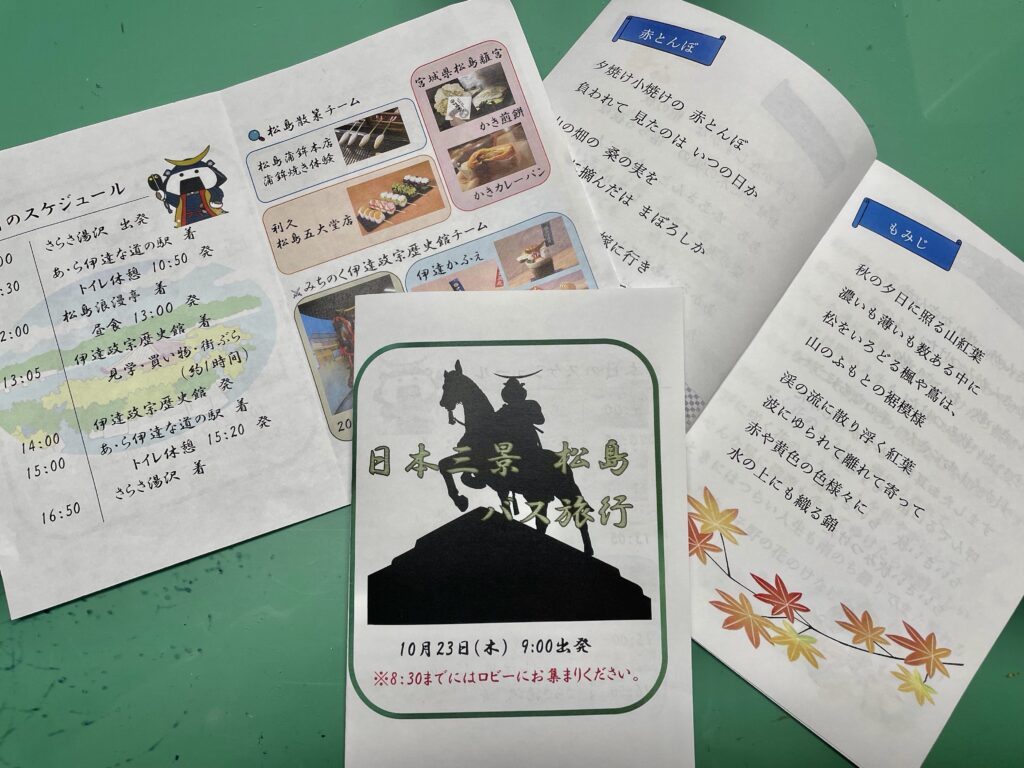 のスケジュール
きらさ湯沢 出発
あ・ら伊達な道の駅 着
トイレ休憩 10:50 発
松島浪漫亭 着
昼食 13:00 発
13:05
伊達政宗歴史館 着
見学・買い物・街ぶら
(約1時間)
14:00
伊達政宗歴史館 発
15:00
あ・ら伊達な道の駅 着
トイレ休憩 15:20 発
16:50
きらさ湯沢 着
松島散策チーム
松島蒲鉾本店
蒲鉾焼き体験
宮城県松島離宮
かき煎餅
かきカレーパン
利久
松島五大堂店
みちのく伊達政宗歴史館チーム
伊達かふぇ
赤とんぼ
夕焼け小焼けの 赤とんぼ
負われて 見たのは いつの日か
山の畑の 桑の実を
摘んだは まぼろしか
家に行き
もみじ
秋の夕日に照る山紅葉
濃いも薄いも数ある中に
松をいろどる楓や蔦は、
山のふもとの裾模様
渓の流に散り浮く紅葉
波にゆられて離れて寄って
赤や黄色の色様々に
水の上にも織る錦
日本三景 松島
バス旅行
10月23日(木) 9:00出発
※8:30までにはロビーにお集まりください。